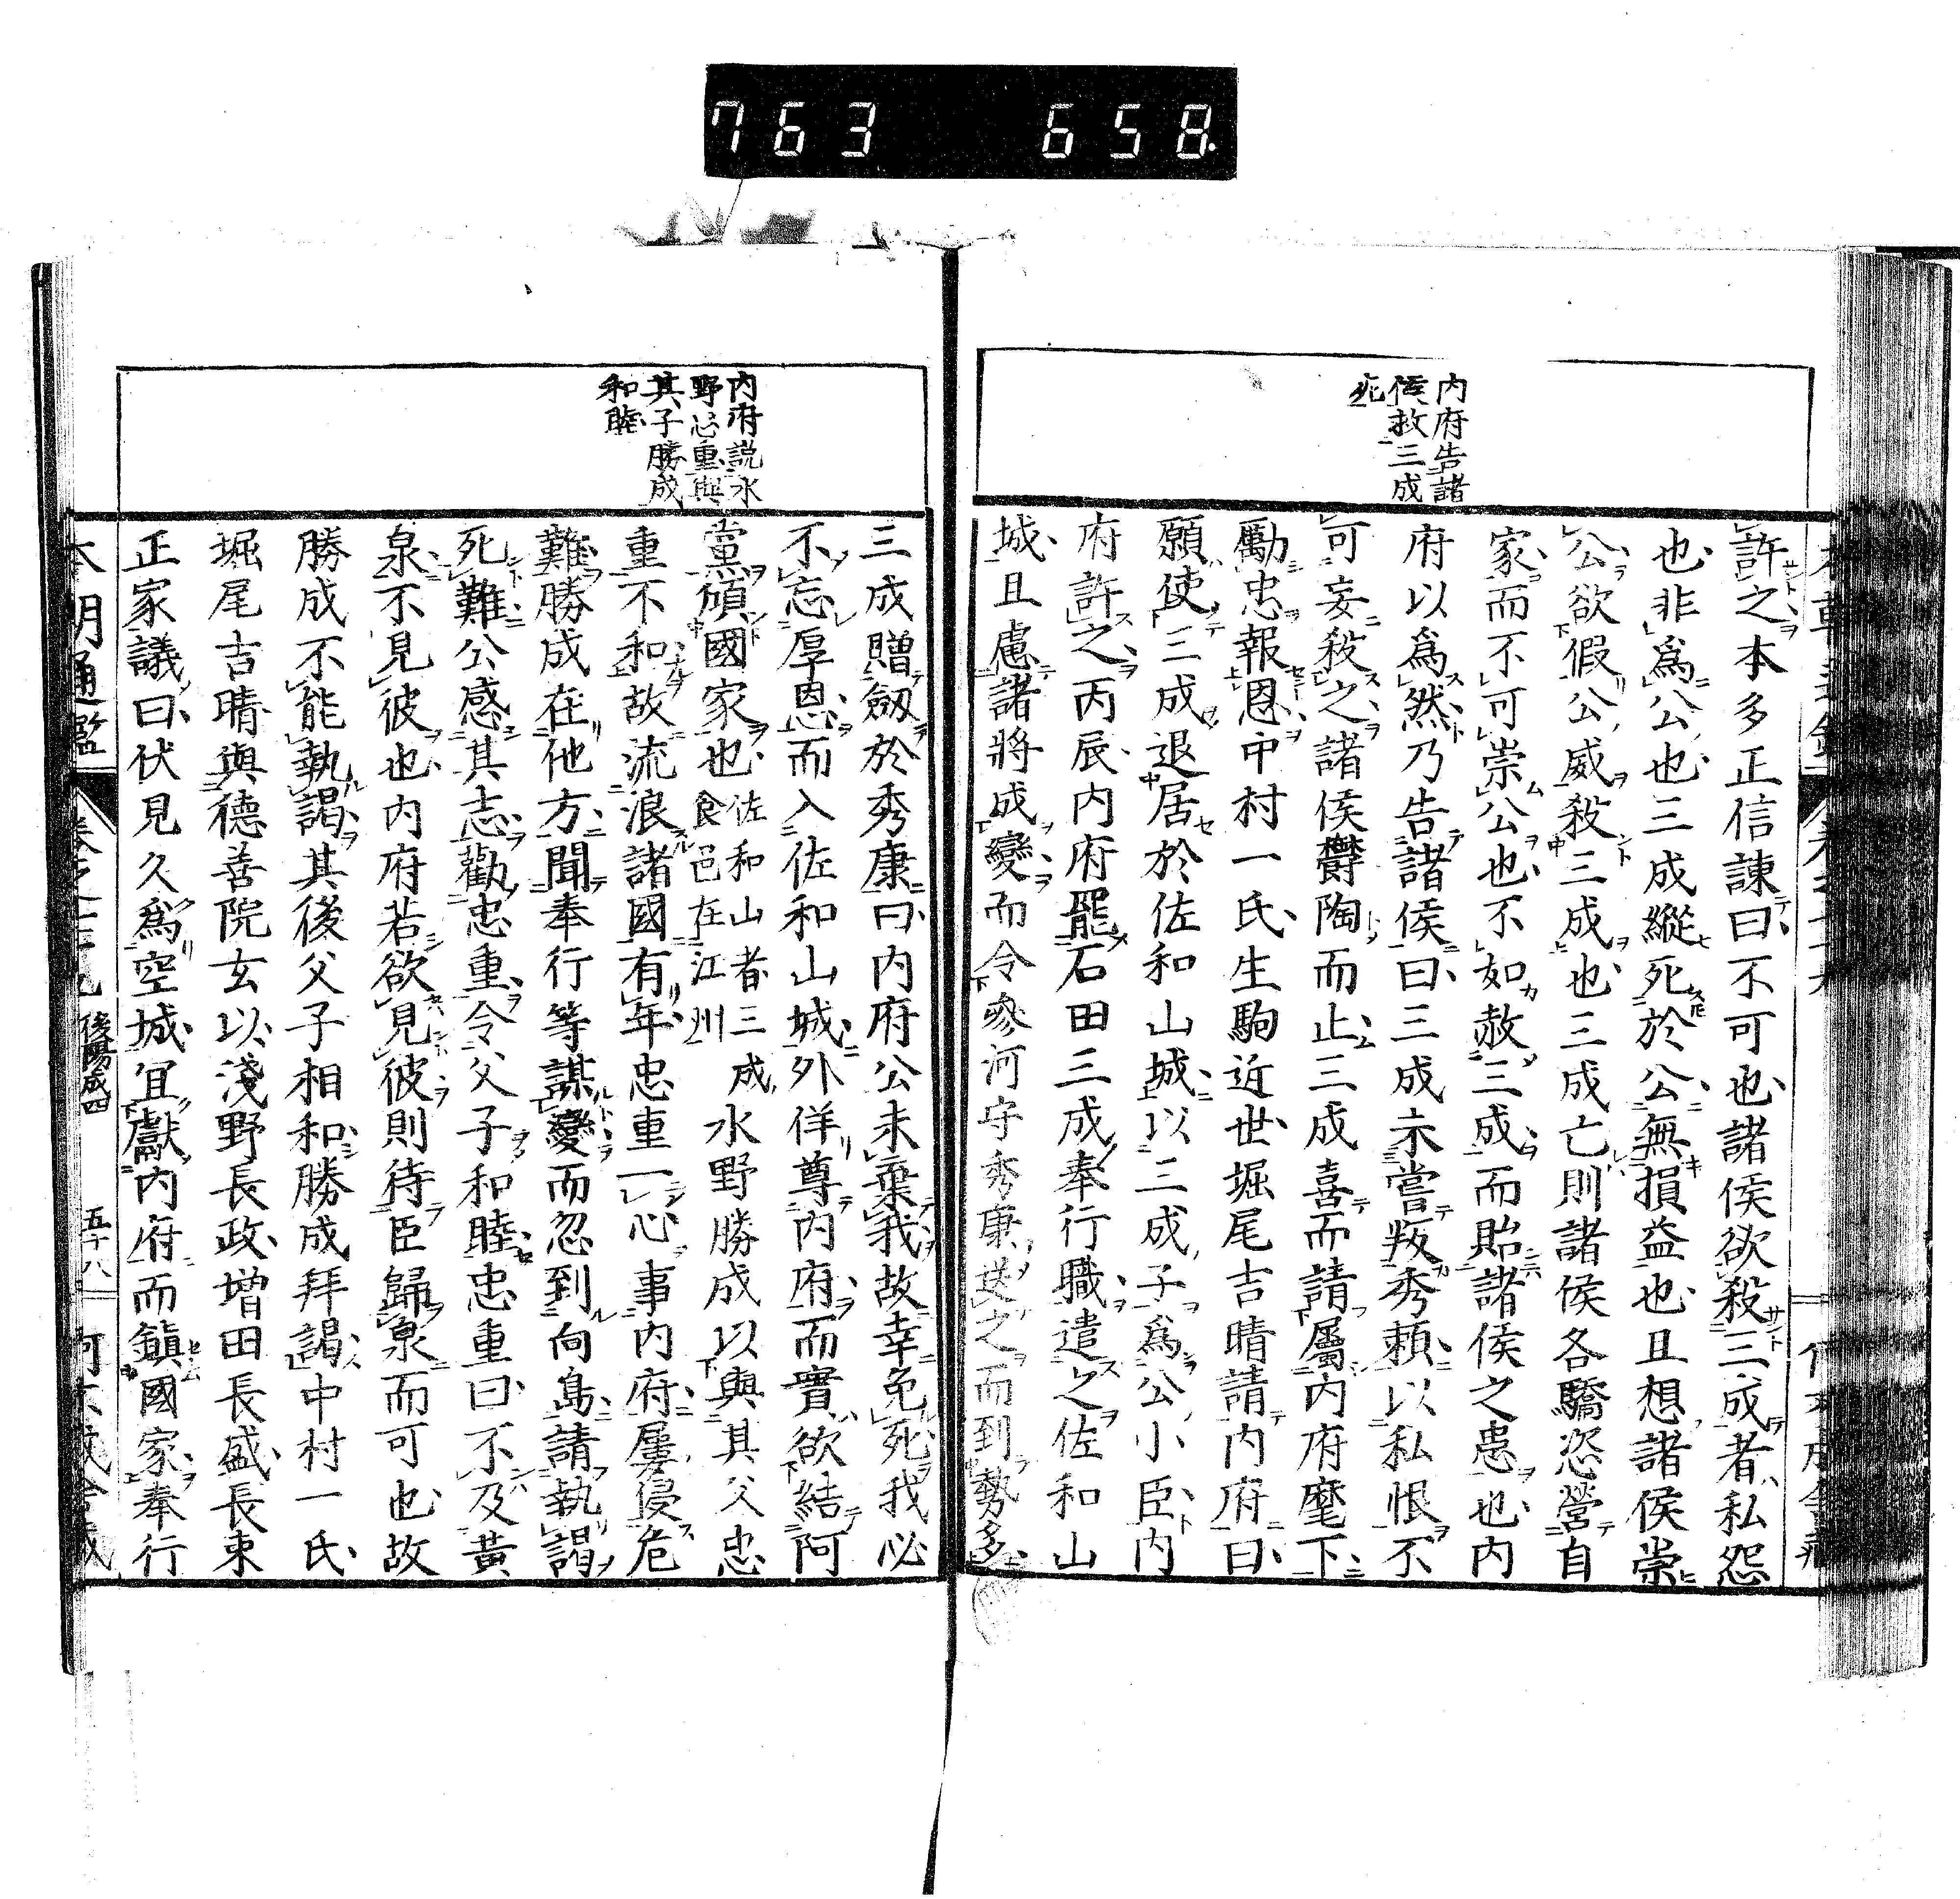 763 658
内府告諸
侯救三成
死
許之本多正信諫曰不可也諸侯欲殺三成者私怨
也非為公也三成縱死於公無損益也且想諸侯崇
公欲假公威殺三成也三成亡則諸侯各驕恣營自
家而不可崇公也不如赦三成而貽諸侯之患也内
府以為然乃告諸侯曰三成未嘗叛秀賴以私恨不
可妄殺之諸侯欝陶而止三成喜而請屬内府麾下
勵忠報恩中村一氏生駒近世堀尾吉晴請内府曰
願使三成退居於佐和山城以三成子為公小臣内
府許之丙辰内府罷石田三成奉行職遣之佐和山
城且慮諸將成變而令參河守秀康送之而到勢多
内府説水
野忠重與
其子勝成
和睦
三成贈劔於秀康曰内府公未棄我故幸免死我必
不忘厚恩而入佐和山城外佯尊内府而實欲結阿
黨傾國家也佐和山者三成食邑在江州水野勝成以與其父忠
重不和故流浪諸國有年忠重一心事内府屢侵危
難勝成在他方聞奉行等謀變而忽到向島請執謁
死難公感其志勸忠重令父子和睦忠重曰不及黃
泉不見彼也内府若欲見彼則待臣歸泉而可也故
勝成不能執謁其後父子相和勝成拜謁中村一氏
堀尾吉晴與德善院玄以淺野長政増田長盛長束
正家議曰伏見久為空城宜獻内府而鎮國家奉行
本朝通鑑 後陽成四 五十八